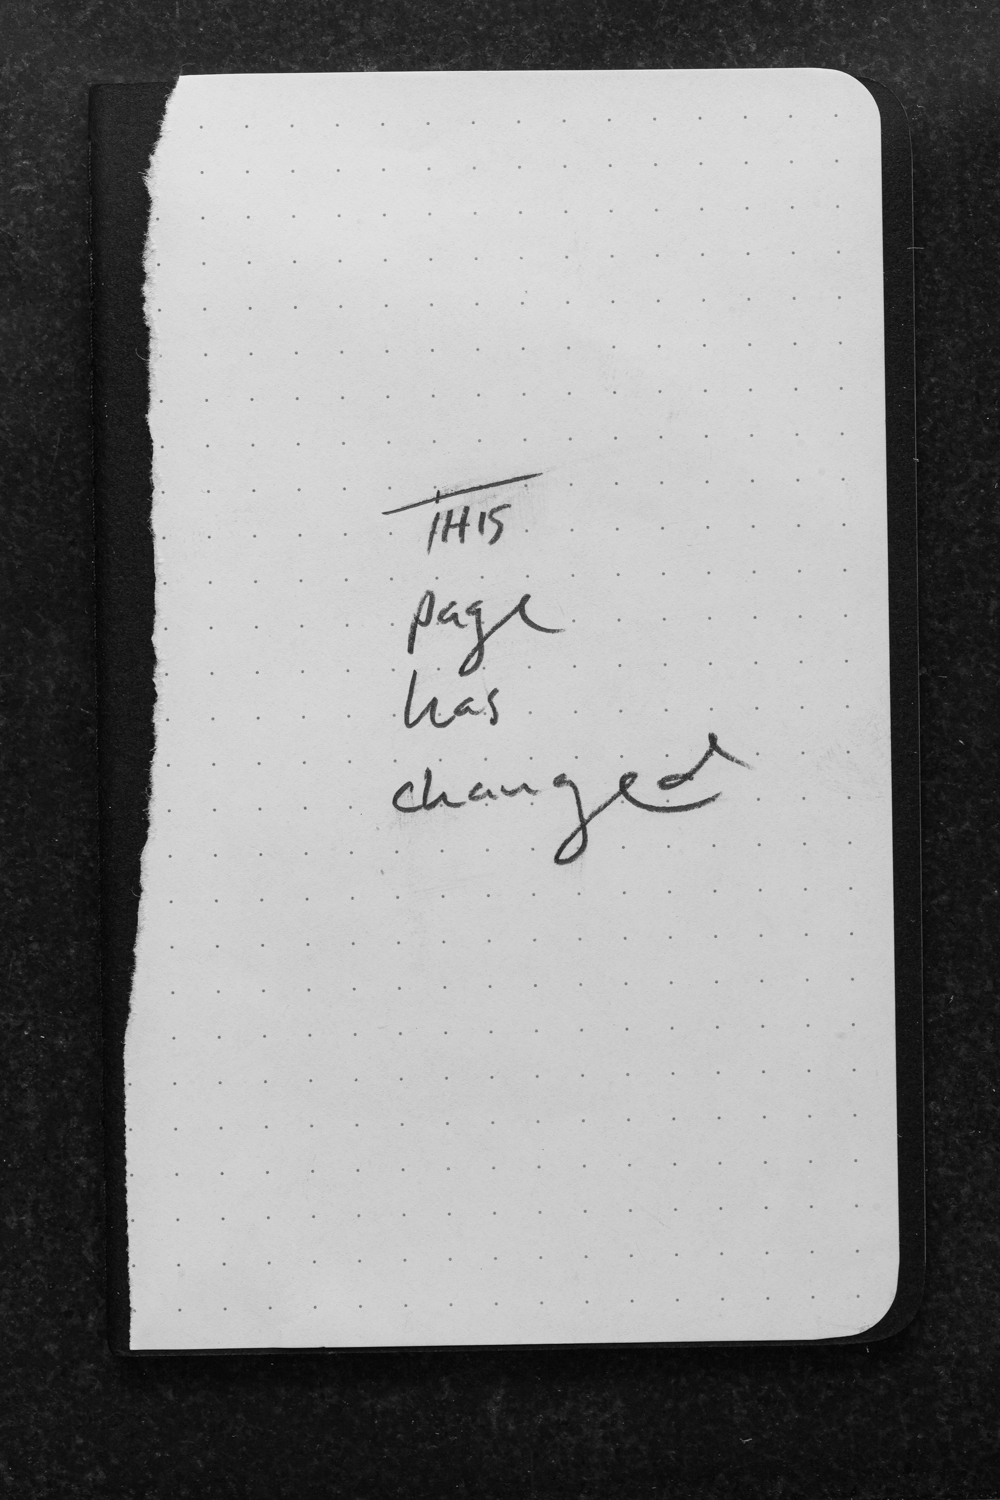 THIS
page
has
changed